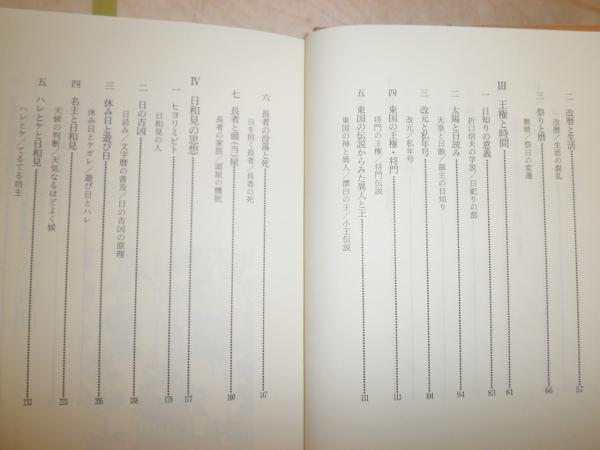 二 改暦と生活 57
改暦／生活の混乱
三 祭りと暦 66
祭日の変遷
Ⅲ 王権と時間 81
一 日知りの意義 83
折口信夫の学説／日祀りの部
二 太陽と日読み 94
天皇と日蝕／領主の日知り
三 改元と私年号 104
改元／私年号
四 東国の王権・将門 113
将門の王権／将門伝説
五 東国の伝説からみた異人と王 131
東国の神と異人／漂白の王／小王伝説
六 長者の没落と死 147
日を招く長者／長者の死
七 長者と頭（当）屋 160
長者の家筋／頭屋の機能
Ⅳ 日和見の思想 177
一 ヒヨリミビト 179
日和見の人
二 日の吉凶 188
日忌み／文字暦の普及／日の吉凶の原理
三 休み日と遊び日 205
休み日とケガレ／遊び日とハレ
四 名主と日和見 223
天候の判断／天気なるほどよく候
五 ハレとケと日和見 233
ハレとケ／てるてる坊主